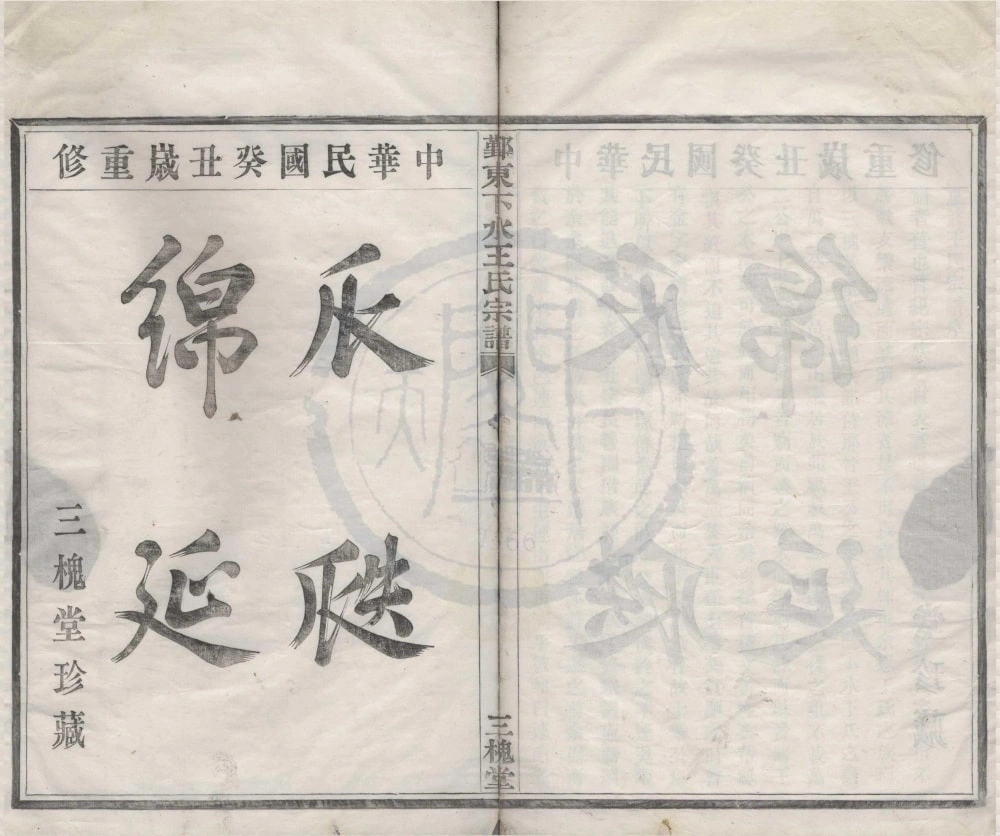 鄞東下水王氏宗譜
三槐堂
中華民國癸丑歲重修
瓜瓞
綿延
三槐堂珍藏